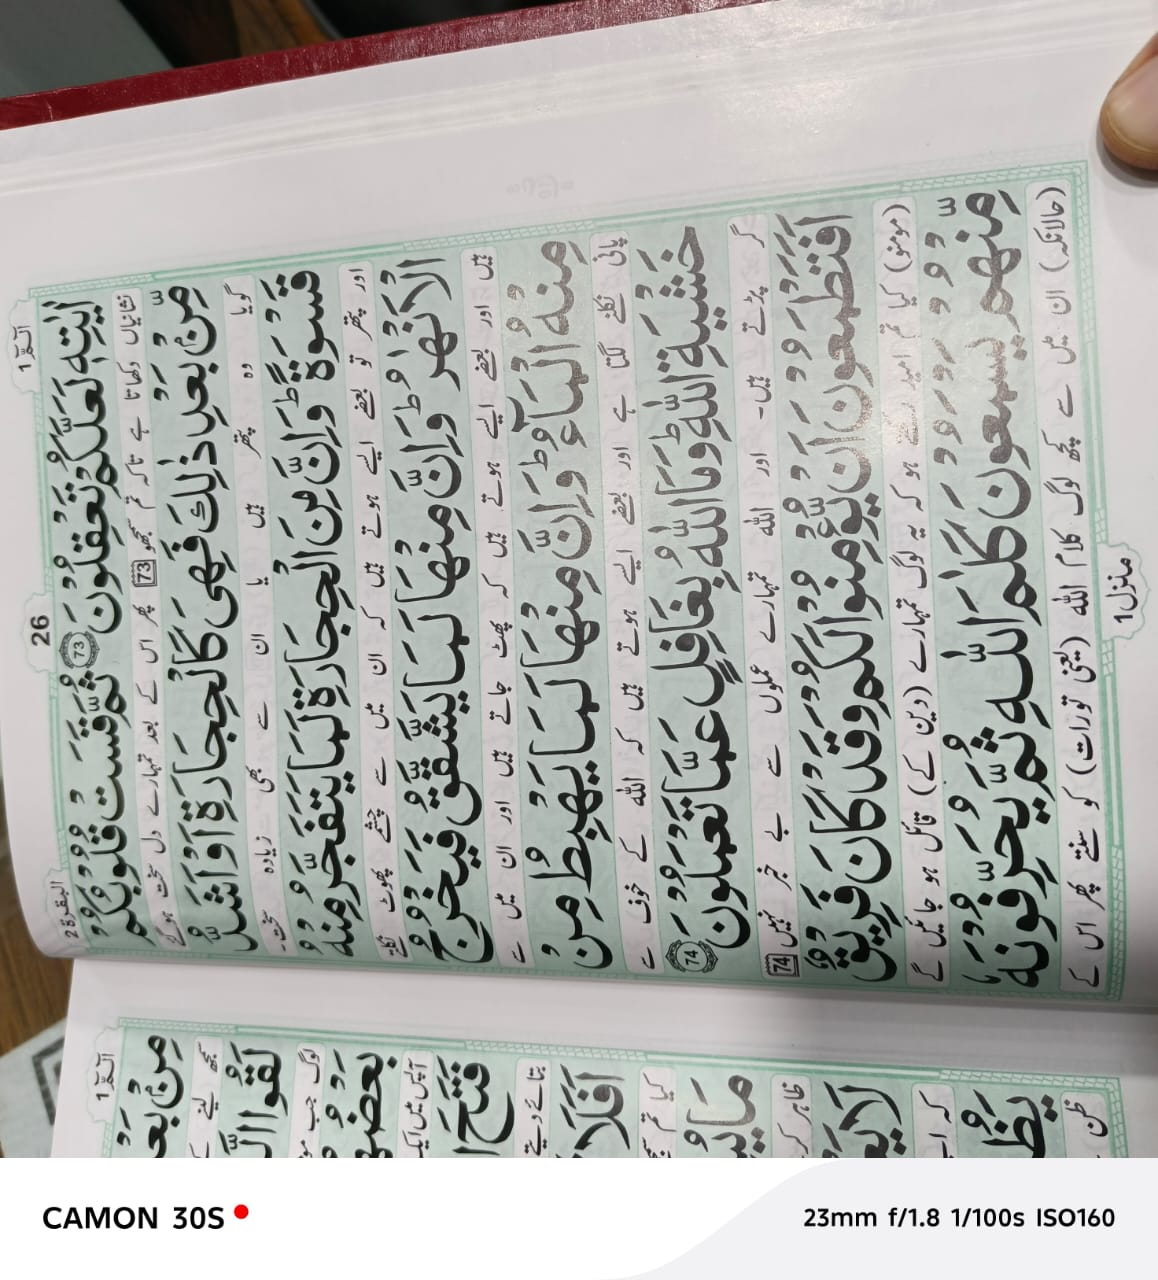 البقرة 2
26
الٓمّٓ 1
اٰيٰتِهٖ لَعَلَّكُمْ تَعْقِلُوْنَ 73 ثُمَّ قَسَتْ قُلُوْبُكُمْ
نشانیاں دکھاتا ہے تاکہ تم سمجھو 73 پھر اس کے بعد تمہارے دل سخت ہو گئے
مِّنْۢ بَعْدِ ذٰلِكَ فَهِىَ كَالْحِجَارَةِ اَوْ اَشَدُّ
گویا وہ پتھر ہیں یا ان سے بھی زیادہ سخت۔
قَسْوَةً ؕ وَاِنَّ مِنَ الْحِجَارَةِ لَمَا يَتَفَجَّرُ مِنْهُ
اور پتھر تو بعضے ایسے ہوتے ہیں کہ ان میں سے چشمے پھوٹ نکلتے
الْاَنْهٰرُ ؕ وَاِنَّ مِنْهَا لَمَا يَشَّقَّقُ فَيَخْرُجُ
ہیں اور بعضے ایسے ہوتے ہیں کہ پھٹ جاتے ہیں اور ان میں سے
مِنْهُ الْمَآءُ ؕ وَاِنَّ مِنْهَا لَمَا يَهْبِطُ مِنْ
پانی نکلنے لگتا ہے اور بعضے ایسے ہوتے ہیں کہ اللہ کے خوف سے
خَشْيَةِ اللّٰهِ ؕ وَمَا اللّٰهُ بِغَافِلٍ عَمَّا تَعْمَلُوْنَ 74
گر پڑتے ہیں۔ اور اللہ تمہارے عملوں سے بے خبر نہیں 74
اَفَتَطْمَعُوْنَ اَنْ يُّؤْمِنُوْا لَكُمْ وَقَدْ كَانَ فَرِيْقٌ
(مومنو) کیا تم امید رکھتے ہو کہ یہ لوگ تمہارے (دین کے) قائل ہو جائیں گے
مِّنْهُمْ يَسْمَعُوْنَ كَلٰمَ اللّٰهِ ثُمَّ يُحَرِّفُوْنَهٗ
(حالانکہ) ان میں سے کچھ لوگ کلام اللہ (یعنی تورات) کو سنتے پھر اس کے
منزل 1
الٓمّٓ 1
مِنْۢ بَعْ
سمجھ لینے کے
لَقُوا الَّ
لوگ جب مو
بَعْضُهُ
آپس میں ایک
فَتَحَ ا
بتائے دیتے
اَفَلَا
کیا تم سمجھ
مَا يُ
ظاہر کر
لَا يَعْ
کہ اپ
يَظُ
ظن
CAMON 30S
23mm f/1.8 1/100s ISO160